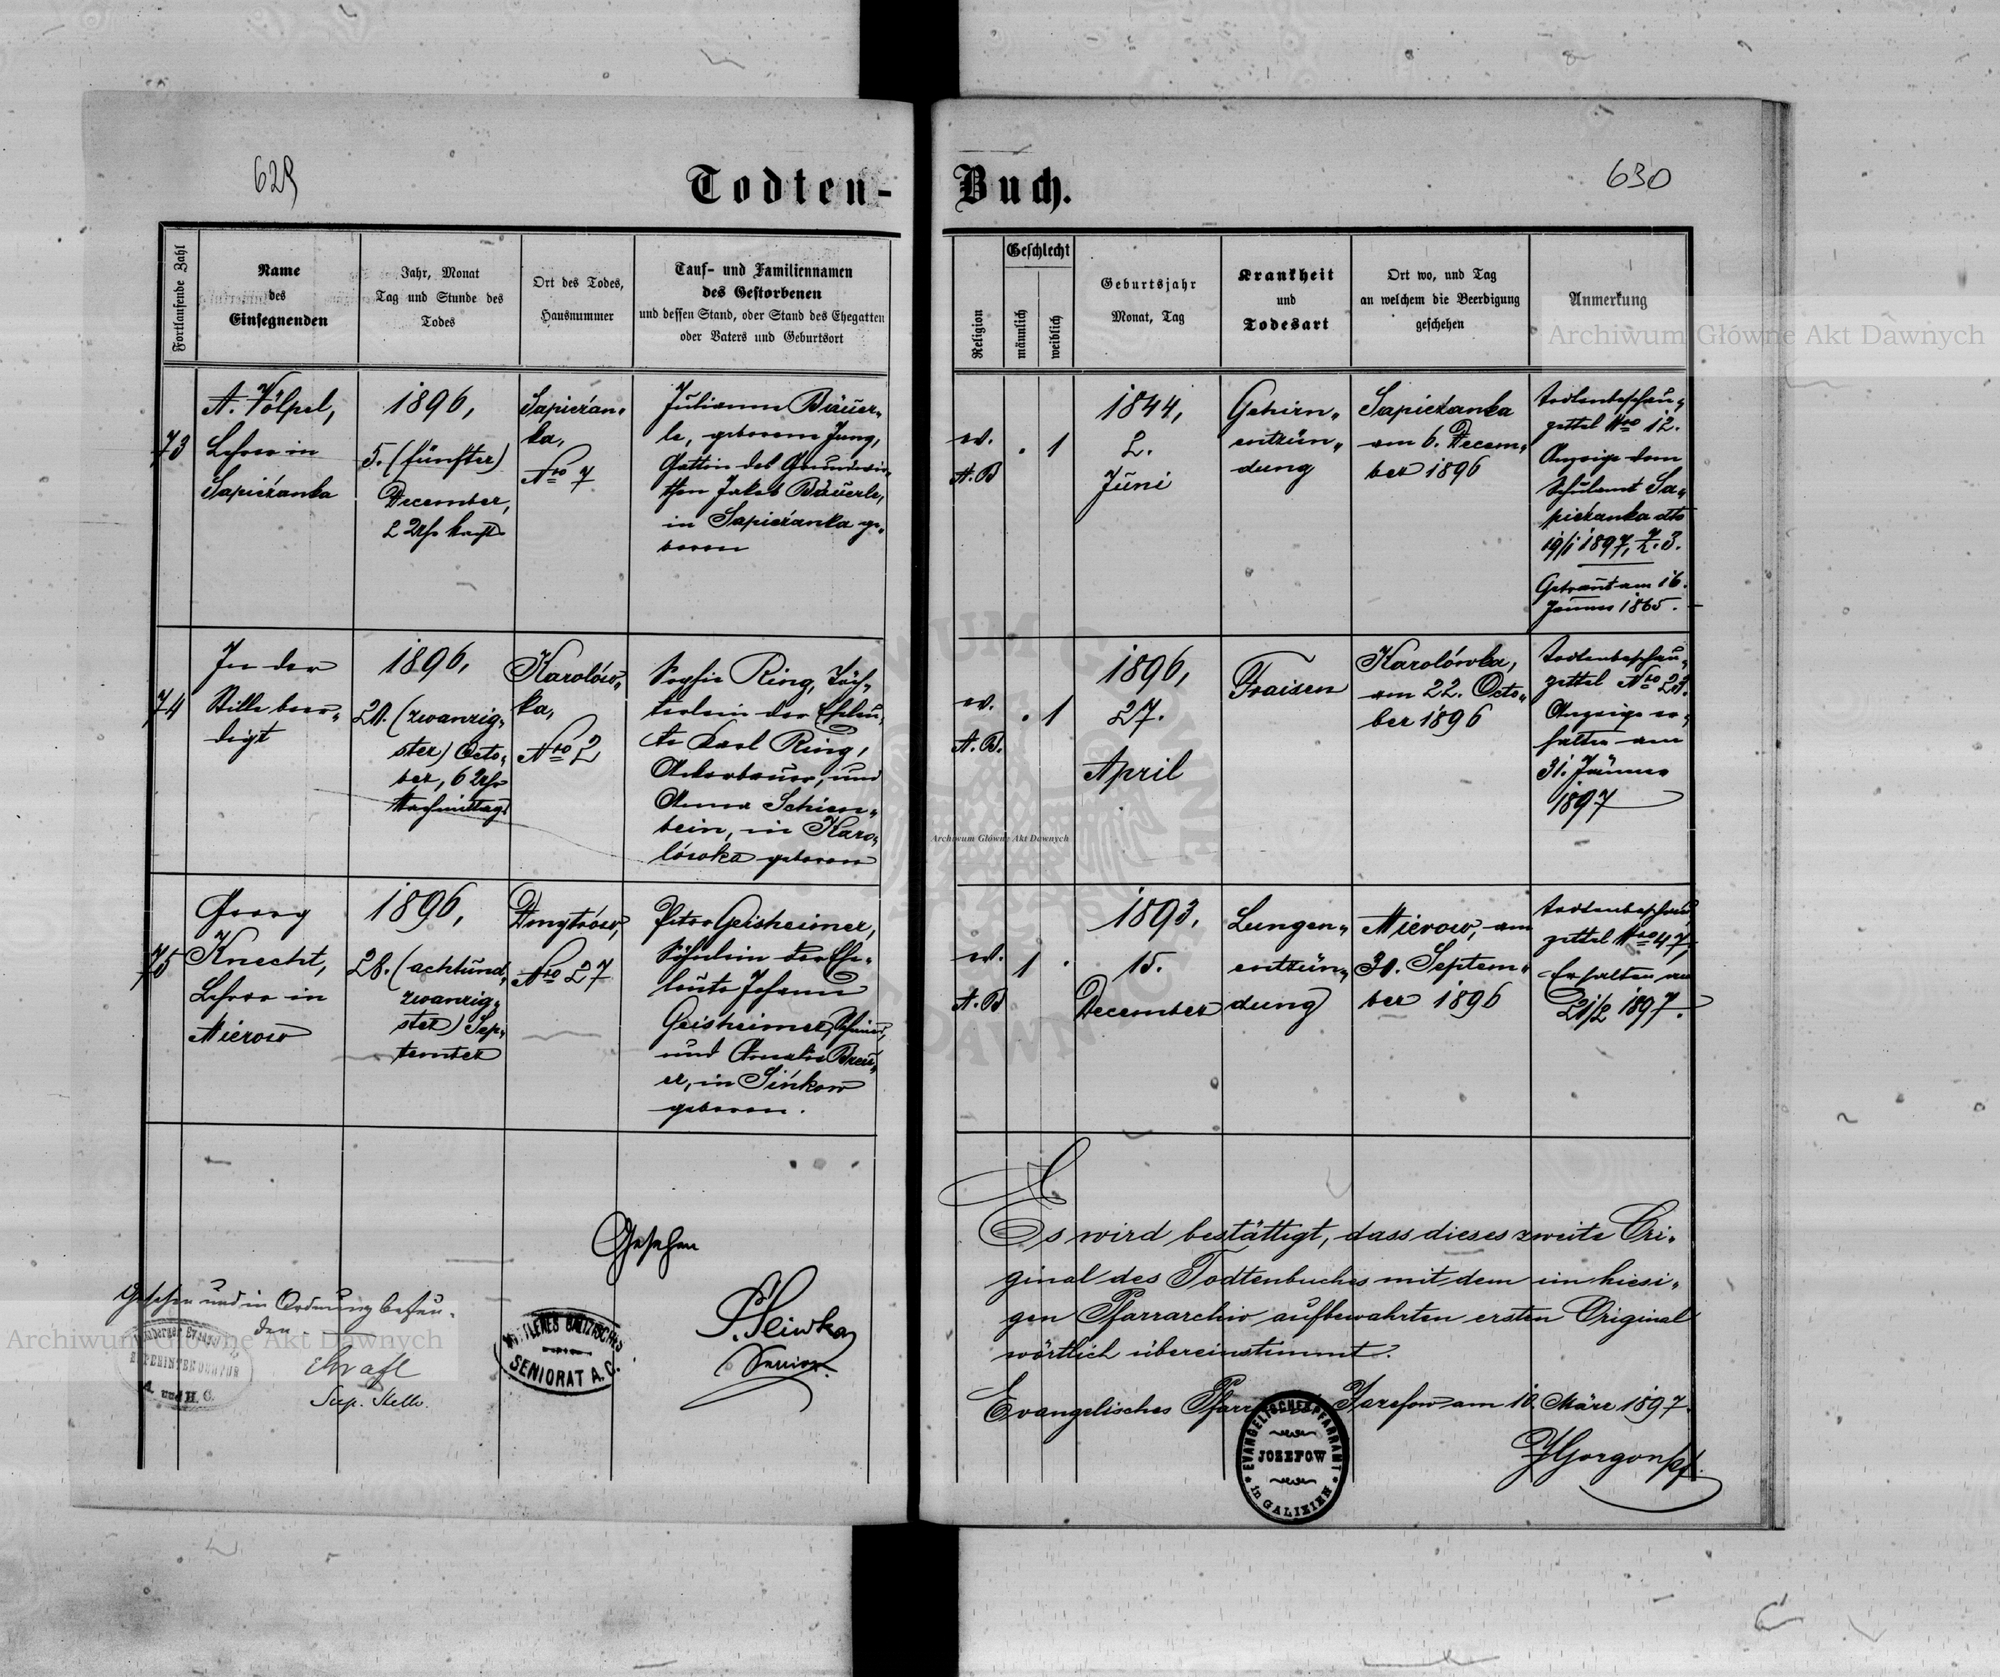 629
Todten-
Buch.
630
Fortlaufende Zahl
Name
des
Einsegnenden
Jahr, Monat
Tag und Stunde des
Todes
Ort des Todes,
Hausnummer
Tauf- und Familiennamen
des Gestorbenen
und dessen Stand, oder Stand des Ehegatten
oder Vaters und Geburtsort
Religion
Geschlecht
männlich
weiblich
Geburtsjahr
Monat, Tag
Krankheit
und
Todesart
Ort wo, und Tag
an welchem die Beerdigung
geschehen
Anmerkung
73
A. Völpel,
Lehrer in
Sapieżanka
1896,
5. (fünfter)
December,
2 Uhr
Sapieżan-
ka,
Nro 7
Julianne Bäuer-
le, geborene Jung,
Gattin des Grundwir-
then Jakob Bäuerle,
in Sapieżanka ge-
boren
ev.
A. B
.
1
1844,
2.
Juni
Gehirn-
entzün-
dung
Sapieżanka
am 6. Decem-
ber 1896
Todtenbeschau-
zettel Nro 12.
Anzeige vom
Schulamt Sa-
pieżanka dto
19/1 1897, Z. 3.
Getraut am 16.
Jänner 1865.
74
In der
Stille beer-
digt
1896,
20. (zwanzig-
ster) Octo-
ber, 6 Uhr
Nachmittags
Karolów-
ka,
Nro 2
Sophie Ring, Töch-
terlein der Eheleu-
te Karl Ring,
Ackerbauer, und
Anna Schien-
bein, in Karo-
lówka geboren
ev.
A. B.
.
1
1896,
27.
April
Fraisen
Karolówka,
am 22. Octo-
ber 1896
Todtenbeschau-
zettel Nro 23.
Anzeige er-
halten am
31. Jänner
1897
75
Georg
Knecht,
Lehrer in
Mierow
1896,
28. (achtund-
zwanzig-
ster) Sep-
tember
Dmytrów,
Nro 27
Peter Geisheimer,
Söhnlein der Ehe-
leute Johann
Geisheimer,
und Amalie Breu-
er, in Sińkow
geboren.
ev.
A. B
1
.
1893,
15.
December
Lungen-
entzün-
dung
Mierow, am
30. Septem-
ber 1896
Todtenbeschau-
zettel Nro 47
Erhalten am
21/2 1897.
Gesehen
Gesehen und in Ordnung befun-
den.
Sup. Stellv.
SUPERINTENDENTUR
A. und H. C.
MITTLERES GALIZISCHES
SENIORAT A. C.
Senior.
Es wird bestättigt, dass dieses zweite Ori-
ginal des Todtenbuches mit dem im hiesi-
gen Pfarrarchiv aufbewahrten ersten Original
wörtlich übereinstimmt.
Evangelisches Josefow am 10. März 1897.
EVANGELISCHES PFARRAMT
JOZEFOW
in GALIZIEN
Archiwum Główne Akt Dawnych
Archiwum Główne Akt Dawnych
Archiwum Główne Akt Dawnych